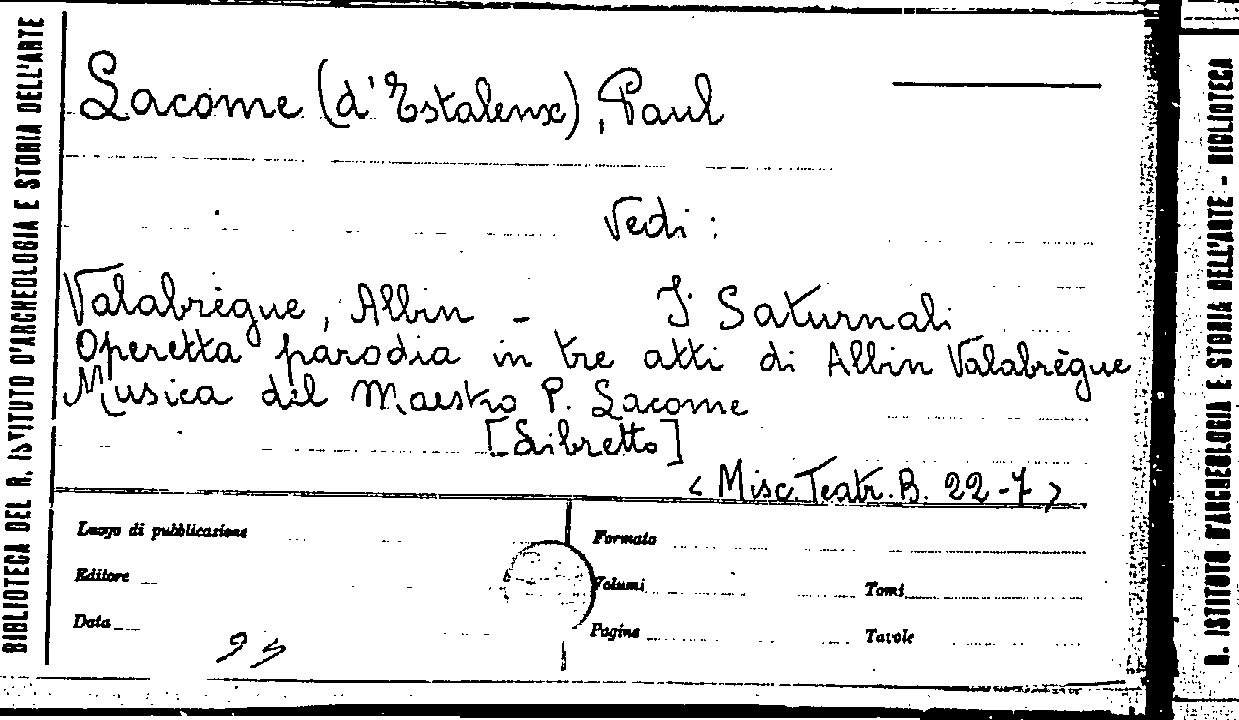 BIBLIOTECA DEL R. ISTITUTO D'ARCHEOLOGIA E STORIA DELL'ARTE
Lacome (d'Estalenx), Paul
Vedi :
Valabrègue, Albin - I Saturnali
Operetta parodia in tre atti di Albin Valabrègue
Musica del Maestro P. Lacome
[Libretto]
< Misc. Teatr. B. 22-7 >
Luogo di pubblicazione
Formato
Editore
Volumi
Tomi
Data
Pagine
Tavole
R. ISTITUTO D'ARCHEOLOGIA E STORIA DELL'ARTE - BIBLIOTECA